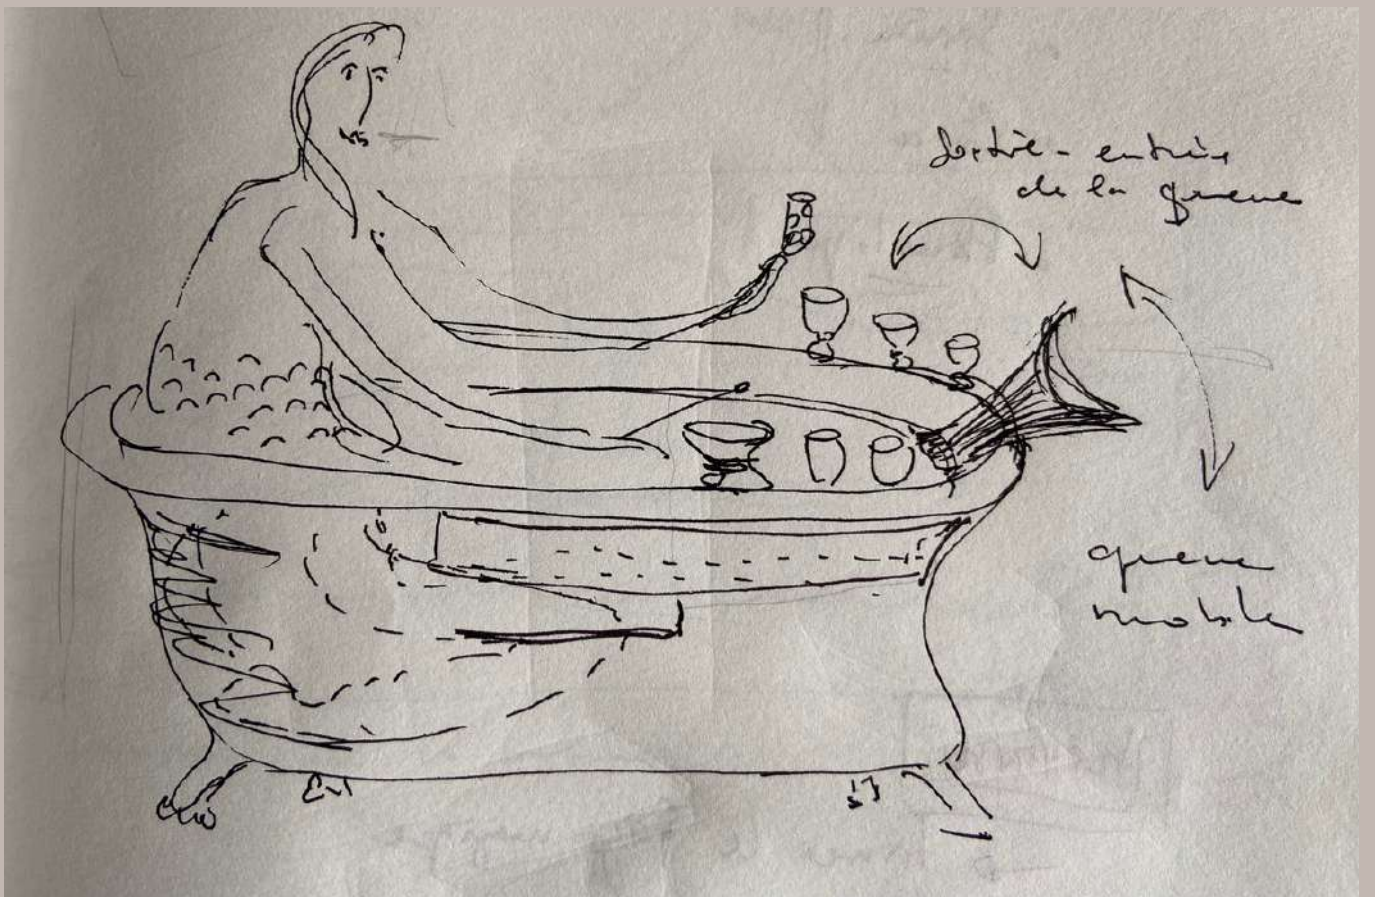 Sortie - entrée
de la queue
queue
mobile